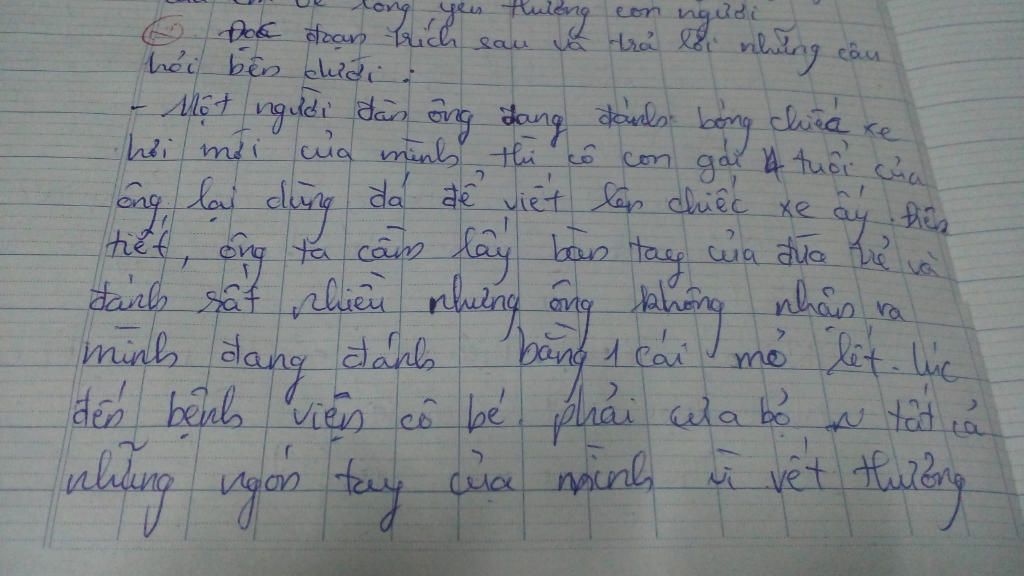 lòng yêu thương con người
② Đọc đoạn trích sau và trả lời những câu
hỏi bên dưới :
- Một người đàn ông đang đánh bóng chiếc xe
hơi mới của mình thì cô con gái 4 tuổi của
ông lại dùng đá để viết lên chiếc xe ấy. Điên
tiết, ông ta cầm lấy bàn tay của đứa trẻ và
đánh rất nhiều nhưng ông không nhận ra
mình đang đánh bằng 1 cái mỏ lết. Lúc
đến bệnh viện cô bé phải cưa bỏ tất cả
những ngón tay của mình vì vết thương